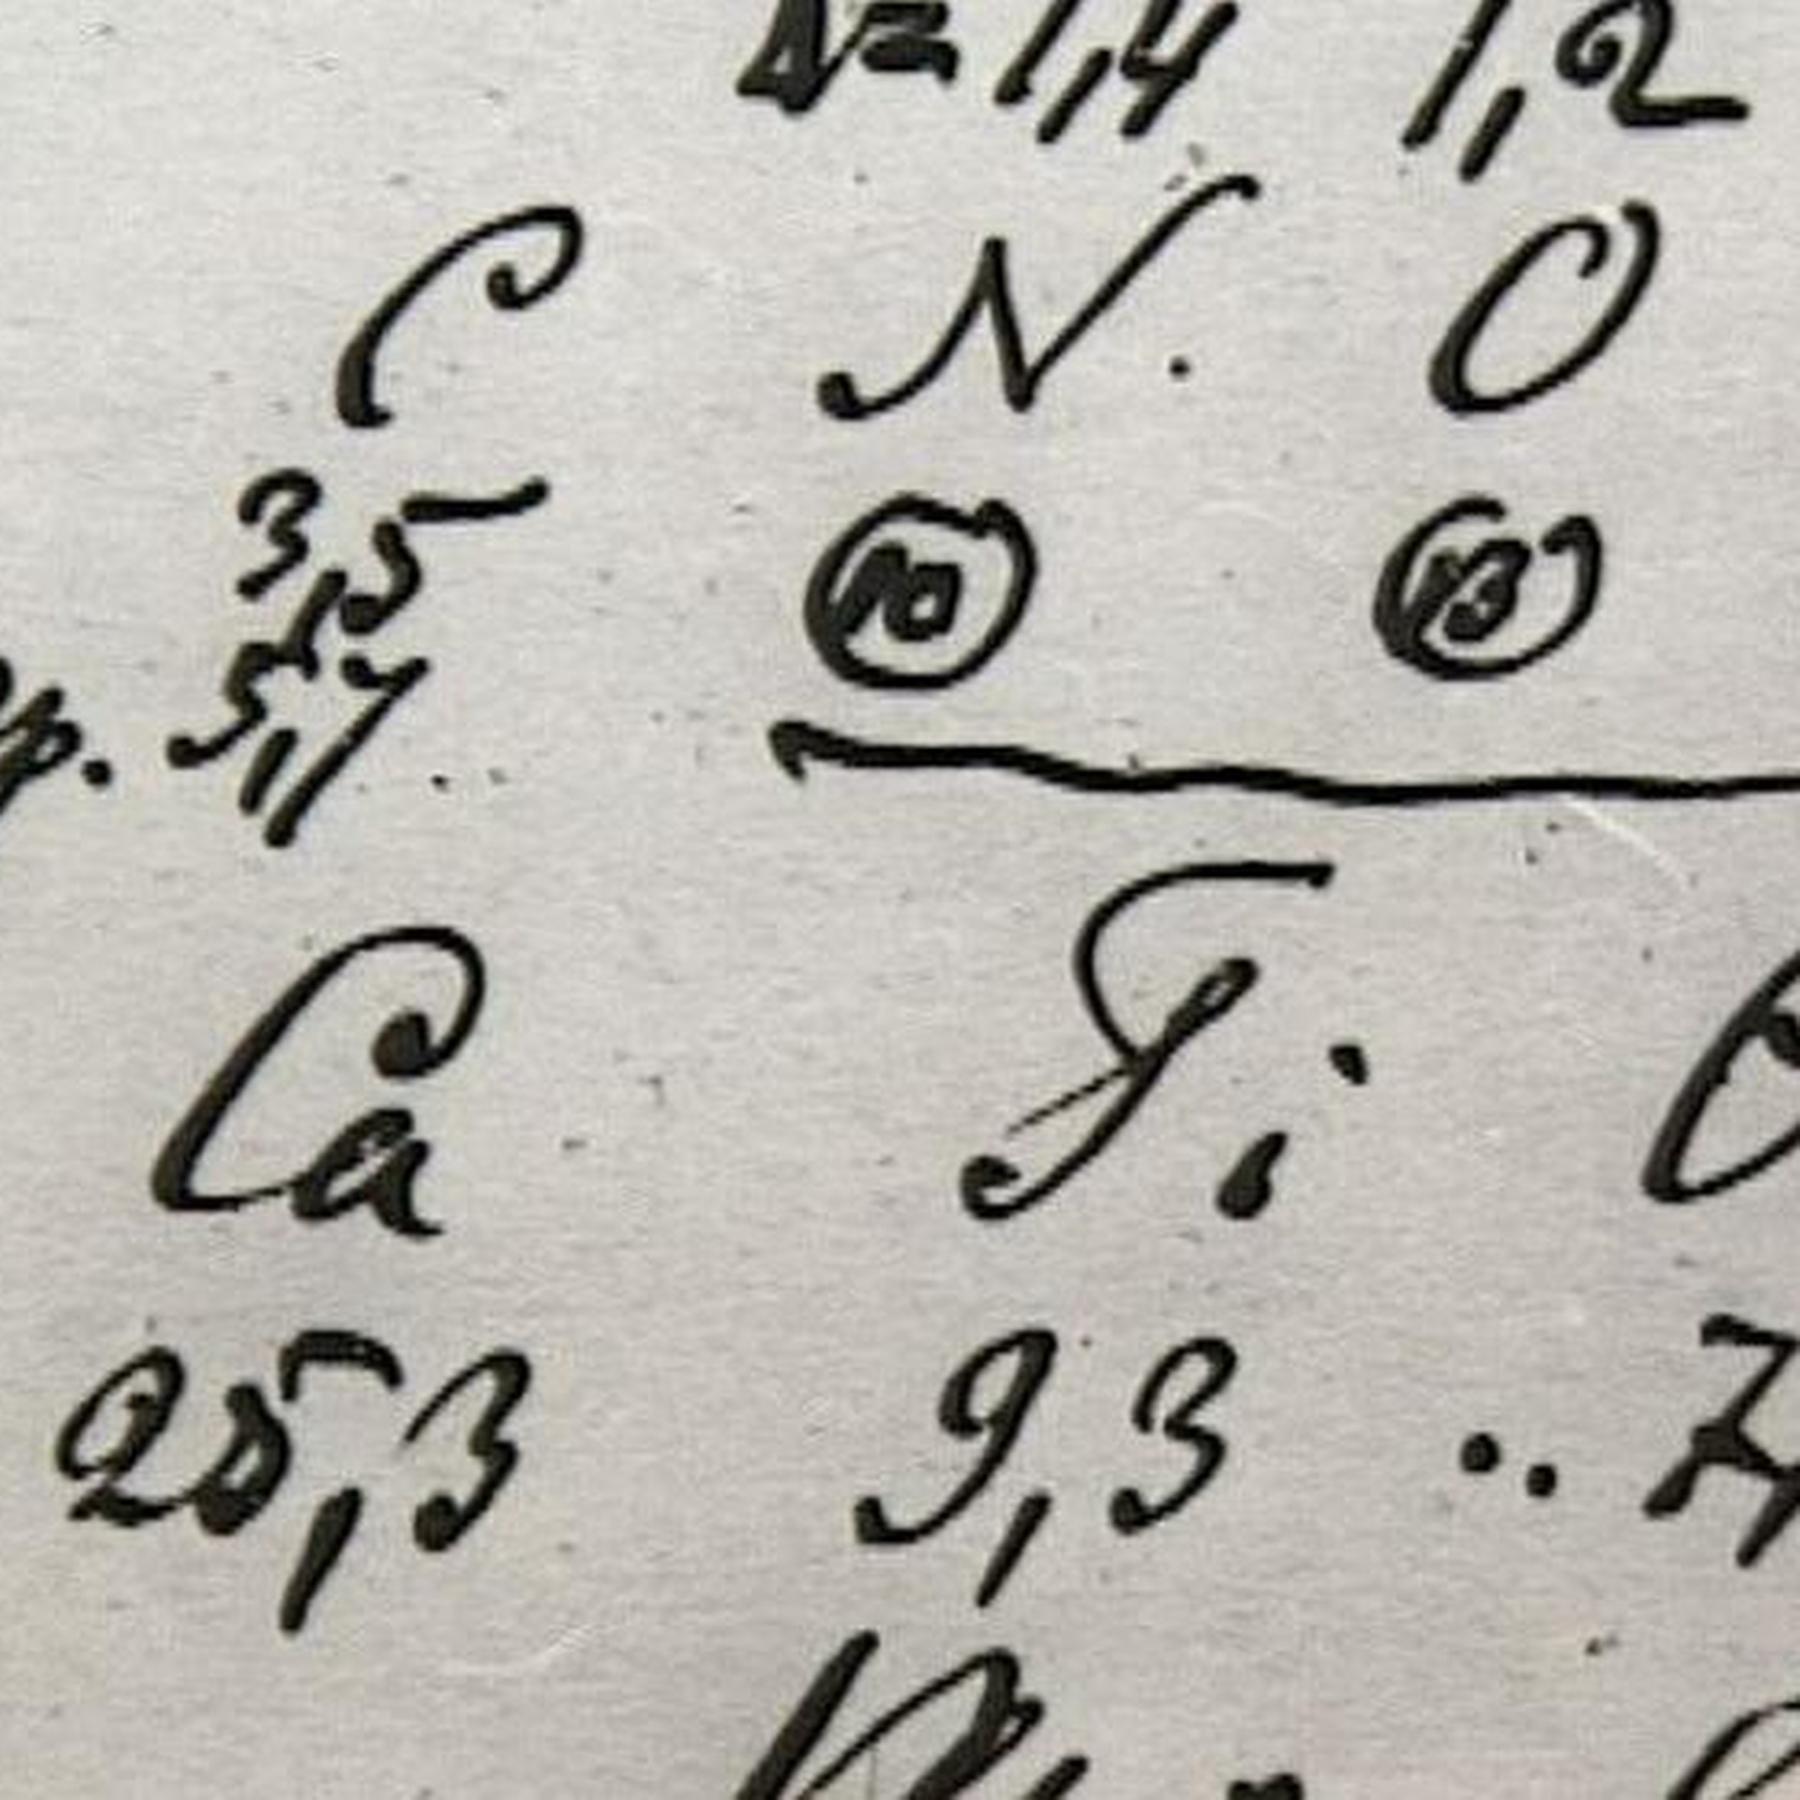 = 1,4 1,2
C N. O
3,5 10 13
5,7
Ca Ti
25,3 9,3 .. 7,